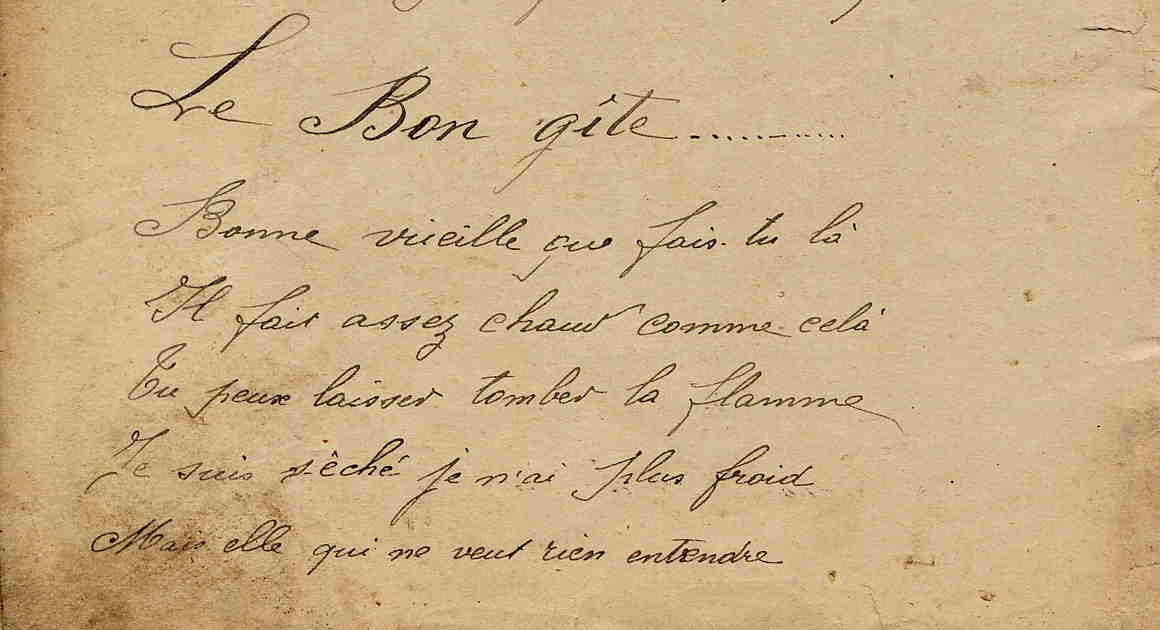 Le Bon gîte..........
Bonne vieille que fais-tu là
Il fait assez chaud comme celà
Tu peux laisser tomber la flamme
Je suis sèché je n'ai plus froid
Mais elle qui ne veut rien entendre